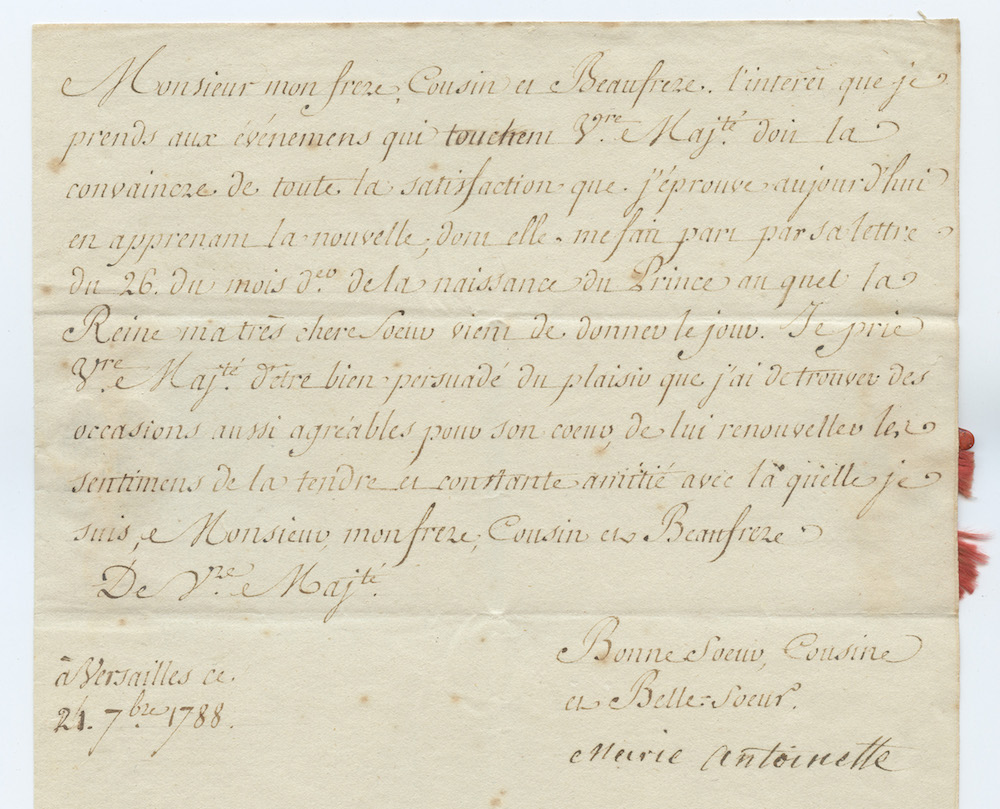 Monsieur mon frere, Cousin et Beaufrere. l'interêt que je
prends aux événemens qui touchent Vre. Majté. doit la
convaincre de toute la satisfaction que j'éprouve aujourd'hui
en apprenant la nouvelle, dont elle me fait part par sa lettre
du 26. du mois der. de la naissance du Prince au quel la
Reine ma très chere Soeur vient de donner le jour. Je prie
Vre. Majté. d'etre bien persuadé du plaisir que j'ai de trouver des
occasions aussi agréables pour son coeur, de lui renouveller les
sentimens de la tendre et constante amitié avec la quelle je
suis, Monsieur, mon frere, Cousin et Beaufrere
De Vre. Majté.
à Versailles ce
7bre. 1788.
Bonne Soeur, Cousine
et Belle-Soeur.
Marie Antoinette